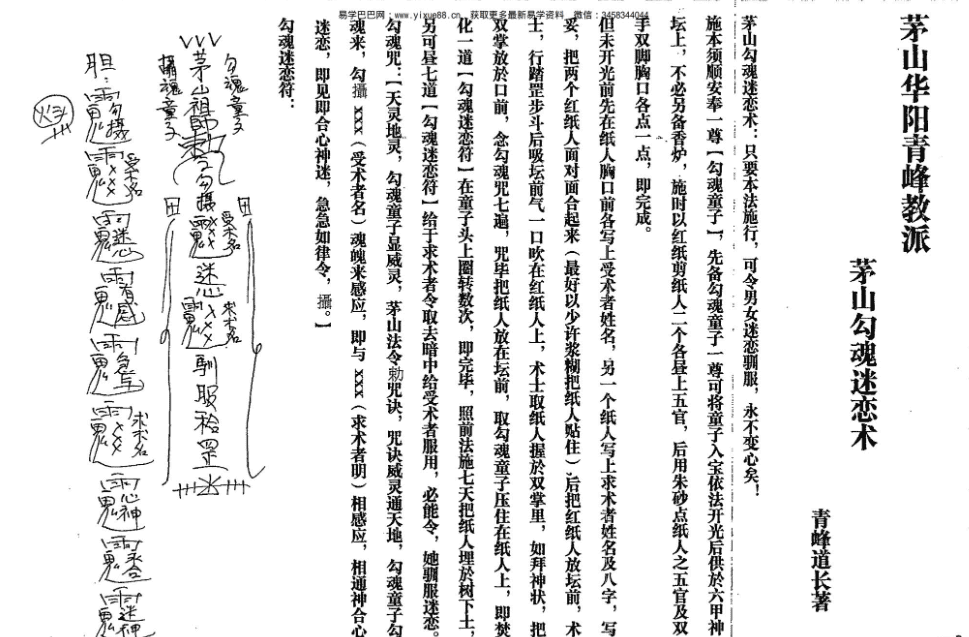 易学巴巴网：www.yixue88.cn，获取更多最新易学资料 微信：3458344044
茅山华阳青峰教派
茅山勾魂迷恋术
青峰道长著
茅山勾魂迷恋术：只要本法施行，可令男女迷恋驯服，永不变心矣！
施本须顺安奉一尊【勾魂童子】，先备勾魂童子一尊可将童子入宝依法开光后供於六甲神
坛上，不必另备香炉，施时以红纸剪纸人二个各昼上五官，后用朱砂点纸人之五官及双
手双脚胸口各点一点，即完成。
但未开光前先在纸人胸口前各写上受术者姓名，另一个纸人写上求术者姓名及八字，写
妥，把两个红纸人面对面合起来（最好以少许浆糊把纸人贴住），后把红纸人放坛前，术
士，行踏罡步斗后吸坛前气一口吹在红纸人上，术士取纸人握於双掌里，如拜神状，把
双掌放於口前，念勾魂咒七遍，咒毕把纸人放在坛前，取勾魂童子压住在纸人上，即焚
化一道【勾魂迷恋符】在童子头上圈转数次，即完毕，照前法施七天把纸人埋於树下土，
另可昼七道【勾魂迷恋符】给于求术者令取去暗中给受术者服用，必能令，她驯服迷恋。
勾魂咒：【天灵地灵，勾魂童子显威灵，茅山法令勅咒诀，咒诀威灵通天地，勾魂童子勾
魂来，勾攝 xxx（受术者名）魂魄来感应，即与 xxx（求术者明）相感应，相通神合心
迷恋，即见即合心神迷，急急如律令，攝。】
勾魂迷恋符：
勾魂童子
茅山祖師勅令勾攝
受术名
xxx
迷恋
求术名
xxx
馴服
攝魂童子
胆：
勾攝
受术名
xxx
迷恋
有感
求术名
xxx
心神
合
迷神